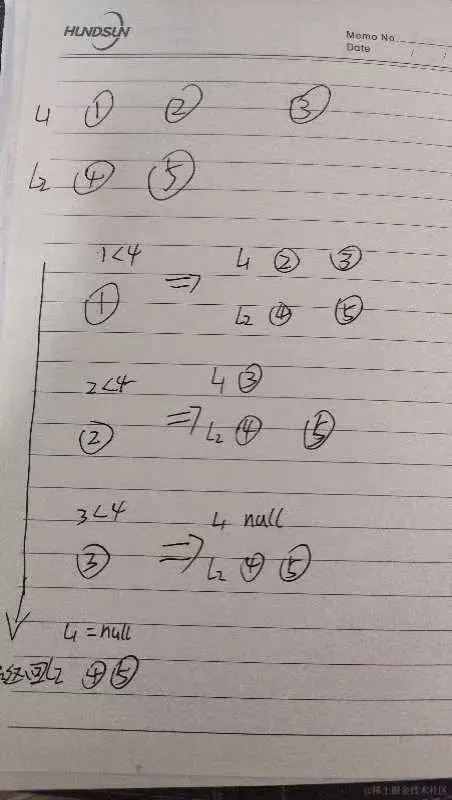 HUNDSUN
Memo No.
Date / /
L1 ① ② ③
L2 ④ ⑤
1<4 ⇒ L1 ② ③
① L2 ④ ⑤
2<4 L1 ③
② ⇒ L2 ④ ⑤
3<4 L1 null
③ ⇒ L2 ④ ⑤
L1=null
返回L2 ④⑤
@稀土掘金技术社区